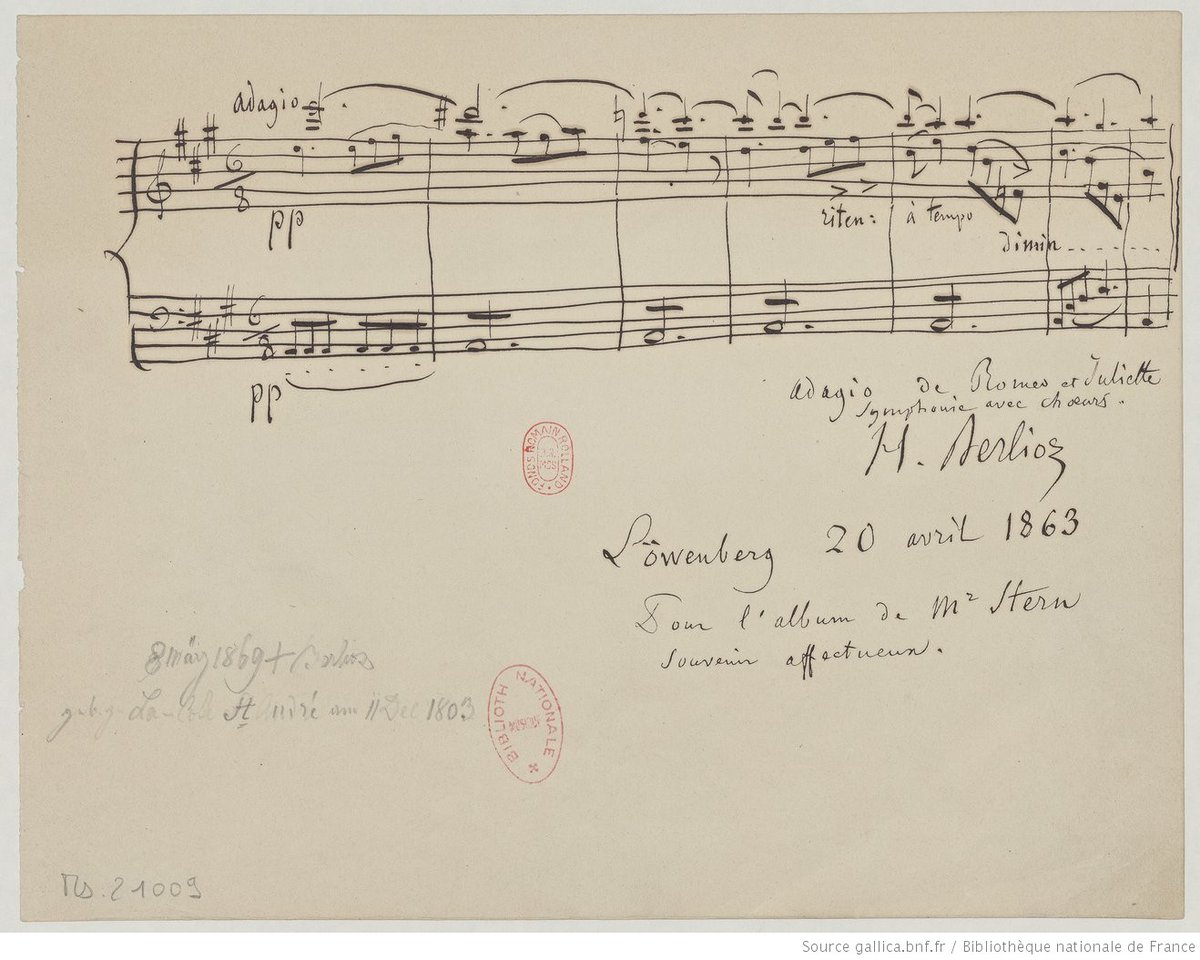 adagio
6
8
pp
riten: à tempo
dimin.......
6
8
pp
adagio de Romeo et Juliette
Symphonie avec chœurs.
H. Berlioz
FONDS ROMAIN ROLLAND
Löwenberg 20 avril 1863
Pour l'album de Mr Stern
souvenir affectueux.
8 März 1869 + Berlioz
St André am 11 Dec 1803
BIBLIOTH NATIONALE
Ms. 21009
Source gallica.bnf.fr / Bibliothèque nationale de France